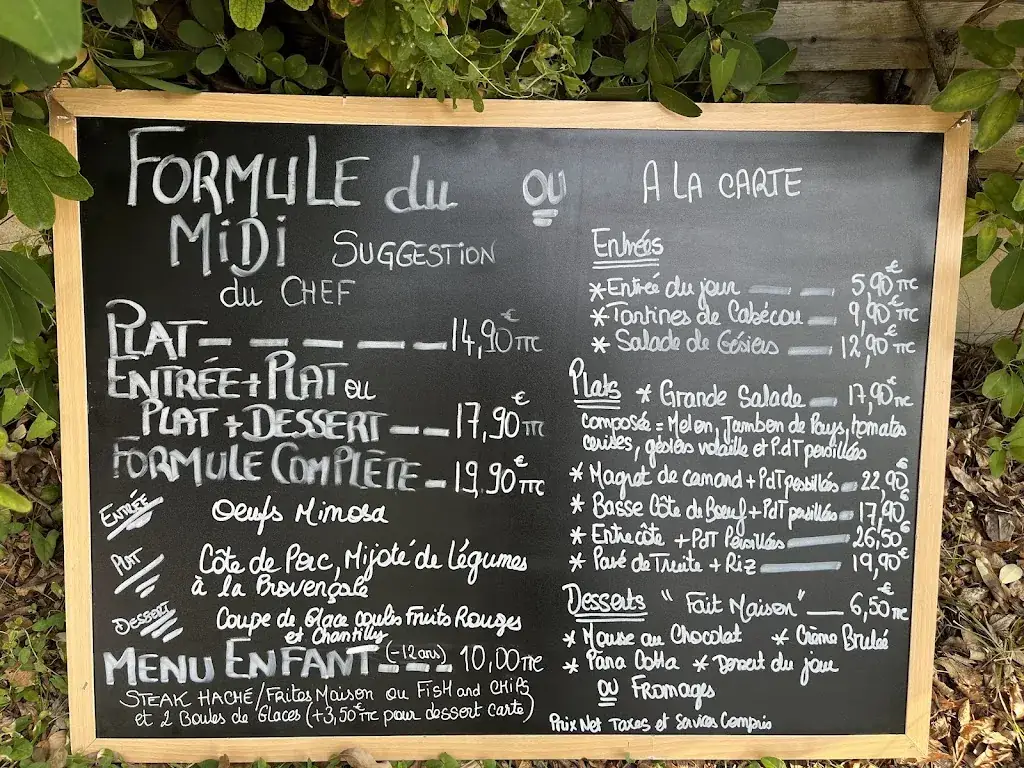 FORMULE du
MIDI SUGGESTION
du CHEF
PLAT 14,90€ TTC
ENTRÉE + PLAT ou
PLAT + DESSERT 17,90€ TTC
FORMULE COMPLÈTE 19,90€ TTC
ENTRÉE Oeufs Mimosa
PLAT Côte de Porc, Mijoté de légumes
à la Provençale
DESSERT Coupe de Glace coulis Fruits Rouges
et Chantilly
MENU ENFANT (-12ans) 10,00 TTC
STEAK HACHÉ / Frites Maison ou FisH and CHiPS
et 2 Boules de Glaces (+3,50€ TTC pour dessert carte)
OU
A LA CARTE
Entrées
* Entrée du jour 5,90€ TTC
* Tartines de Cabécou 9,90€ TTC
* Salade de Gésiers 12,90€ TTC
Plats * Grande Salade 17,90€ TTC
composée = Melon, Jambon de Pays, tomates
cerises, gésiers volaille et P.d T persillés
* Magret de canard + PdT persillés 22,90€
* Basse Côte de Boeuf + PdT persillés 17,90€
* Entrecôte + PdT Persillés 26,50€
* Pavé de Truite + Riz 19,90€
Desserts "Fait Maison" 6,50 TTC
* Mousse au Chocolat * Crème Brulée
* Pana Cotta * Dessert du jour
OU Fromages
Prix Net Taxes et Services Compris